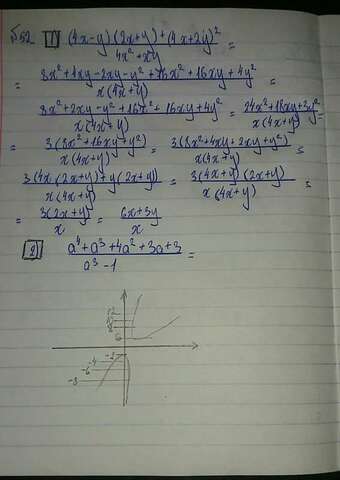 №52 1) ((4x-y)(2x+y)+(4x+2y)²)/(4x²+xy) =
= (8x²+4xy-2xy-y²+16x²+16xy+4y²)/(x(4x+y)) =
(8x²+2xy-y²+16x²+16xy+4y²)/(x(4x+y)) = (24x²+18xy+3y²)/(x(4x+y)) =
= 3(8x²+16xy+y²)/(x(4x+y)) = 3(8x²+4xy+2xy+y²)/(x(4x+y)) =
3(4x(2x+y)+y(2x+y))/(x(4x+y)) = 3(4x+y)(2x+y)/(x(4x+y)) =
= 3(2x+y)/x = (6x+3y)/x
2) (a⁴+a³+4a²+3a+3)/(a³-1) =
12
10
8
6
-2
-4
-6
-8